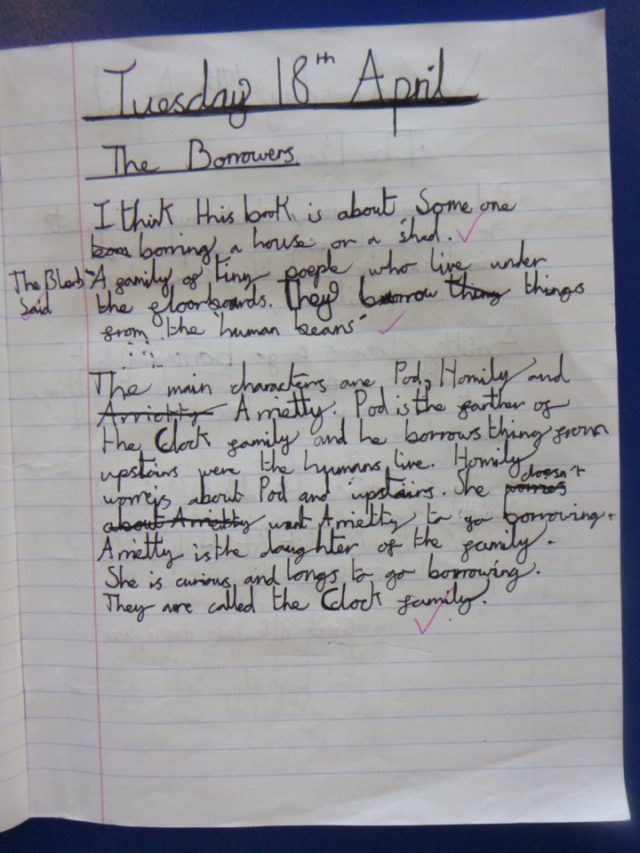 Tuesday 18th April
The Borrowers
I think this book is about Some one
boa borring a house or a shed.
The Blerb "A family of tiny poeple who live under
said the floorboards. They borrow thing things
from the "human beans"
The main characters are Pod, Homily and
Arrichty Arrietty. Pod is the farther of
the Clock family and he borrows thing from
upstairs were the humans live. Homily
worreis about Pod and upstairs. She worries doesn't
about Arrietty want Arrietty to go borrowing.
Arrietty is the daughter of the family.
She is curious and longs to go borrowing.
They are called the Clock family.